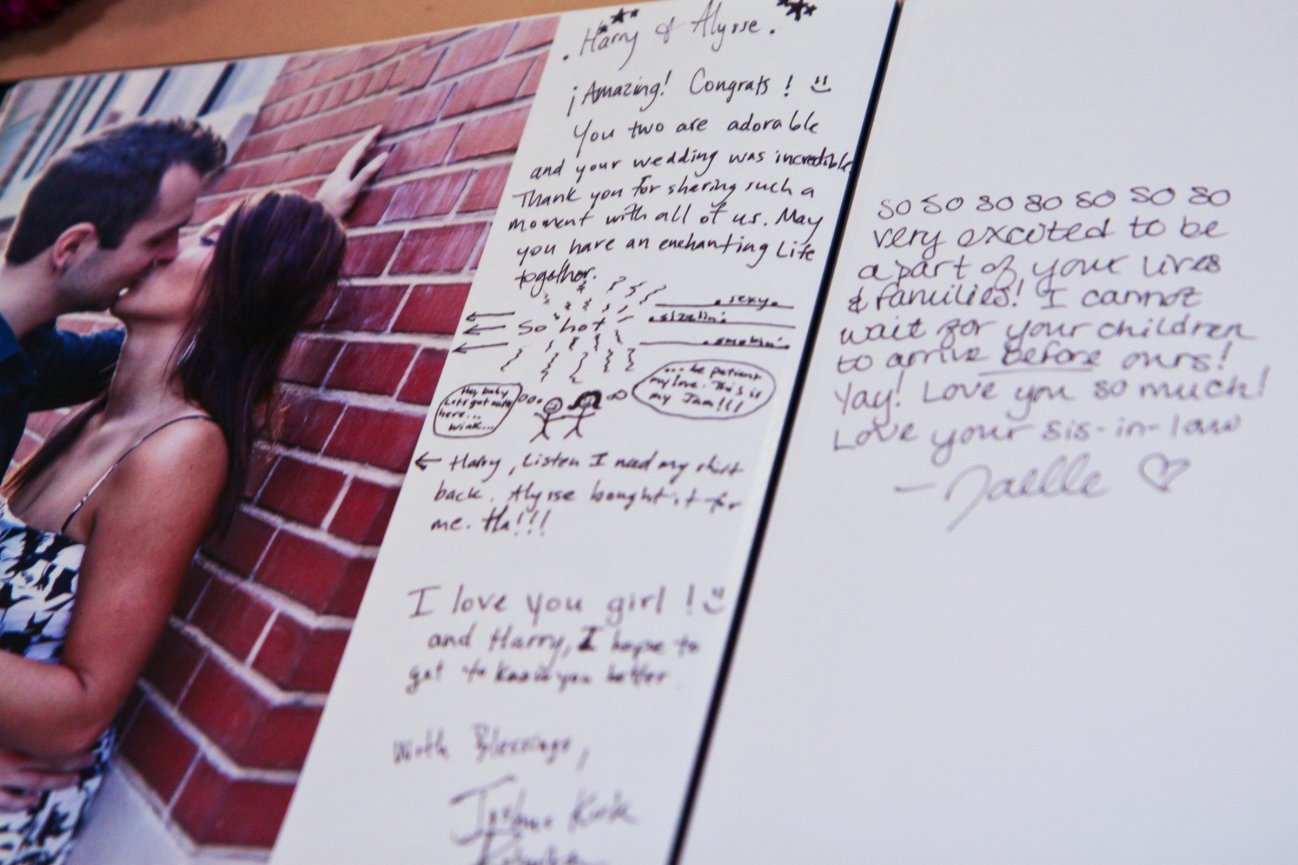 . Harry & Alysse .
¡Amazing! Congrats !
You two are adorable
and your wedding was incredible
Thank you for sharing such a
moment with all of us. May
you have an enchanting Life
together.
. sexy .
so hot
. sizzlin' .
. smokin' .
Hey, baby
Let's get outta
here...
wink...
...be patient
my love. This is
my Jam!!!
← Harry, Listen I need my shirt
back. Alysse bought it for
me. Ha!!!
I love you girl !
and Harry, I hope to
get to know you better
With Blessings,
Joshua
so so so so so so so
very excited to be
a part of your lives
& families! I cannot
wait for your children
to arrive before ours!
Yay! Love you so much!
Love your sis-in-law
- Jaelle ♡